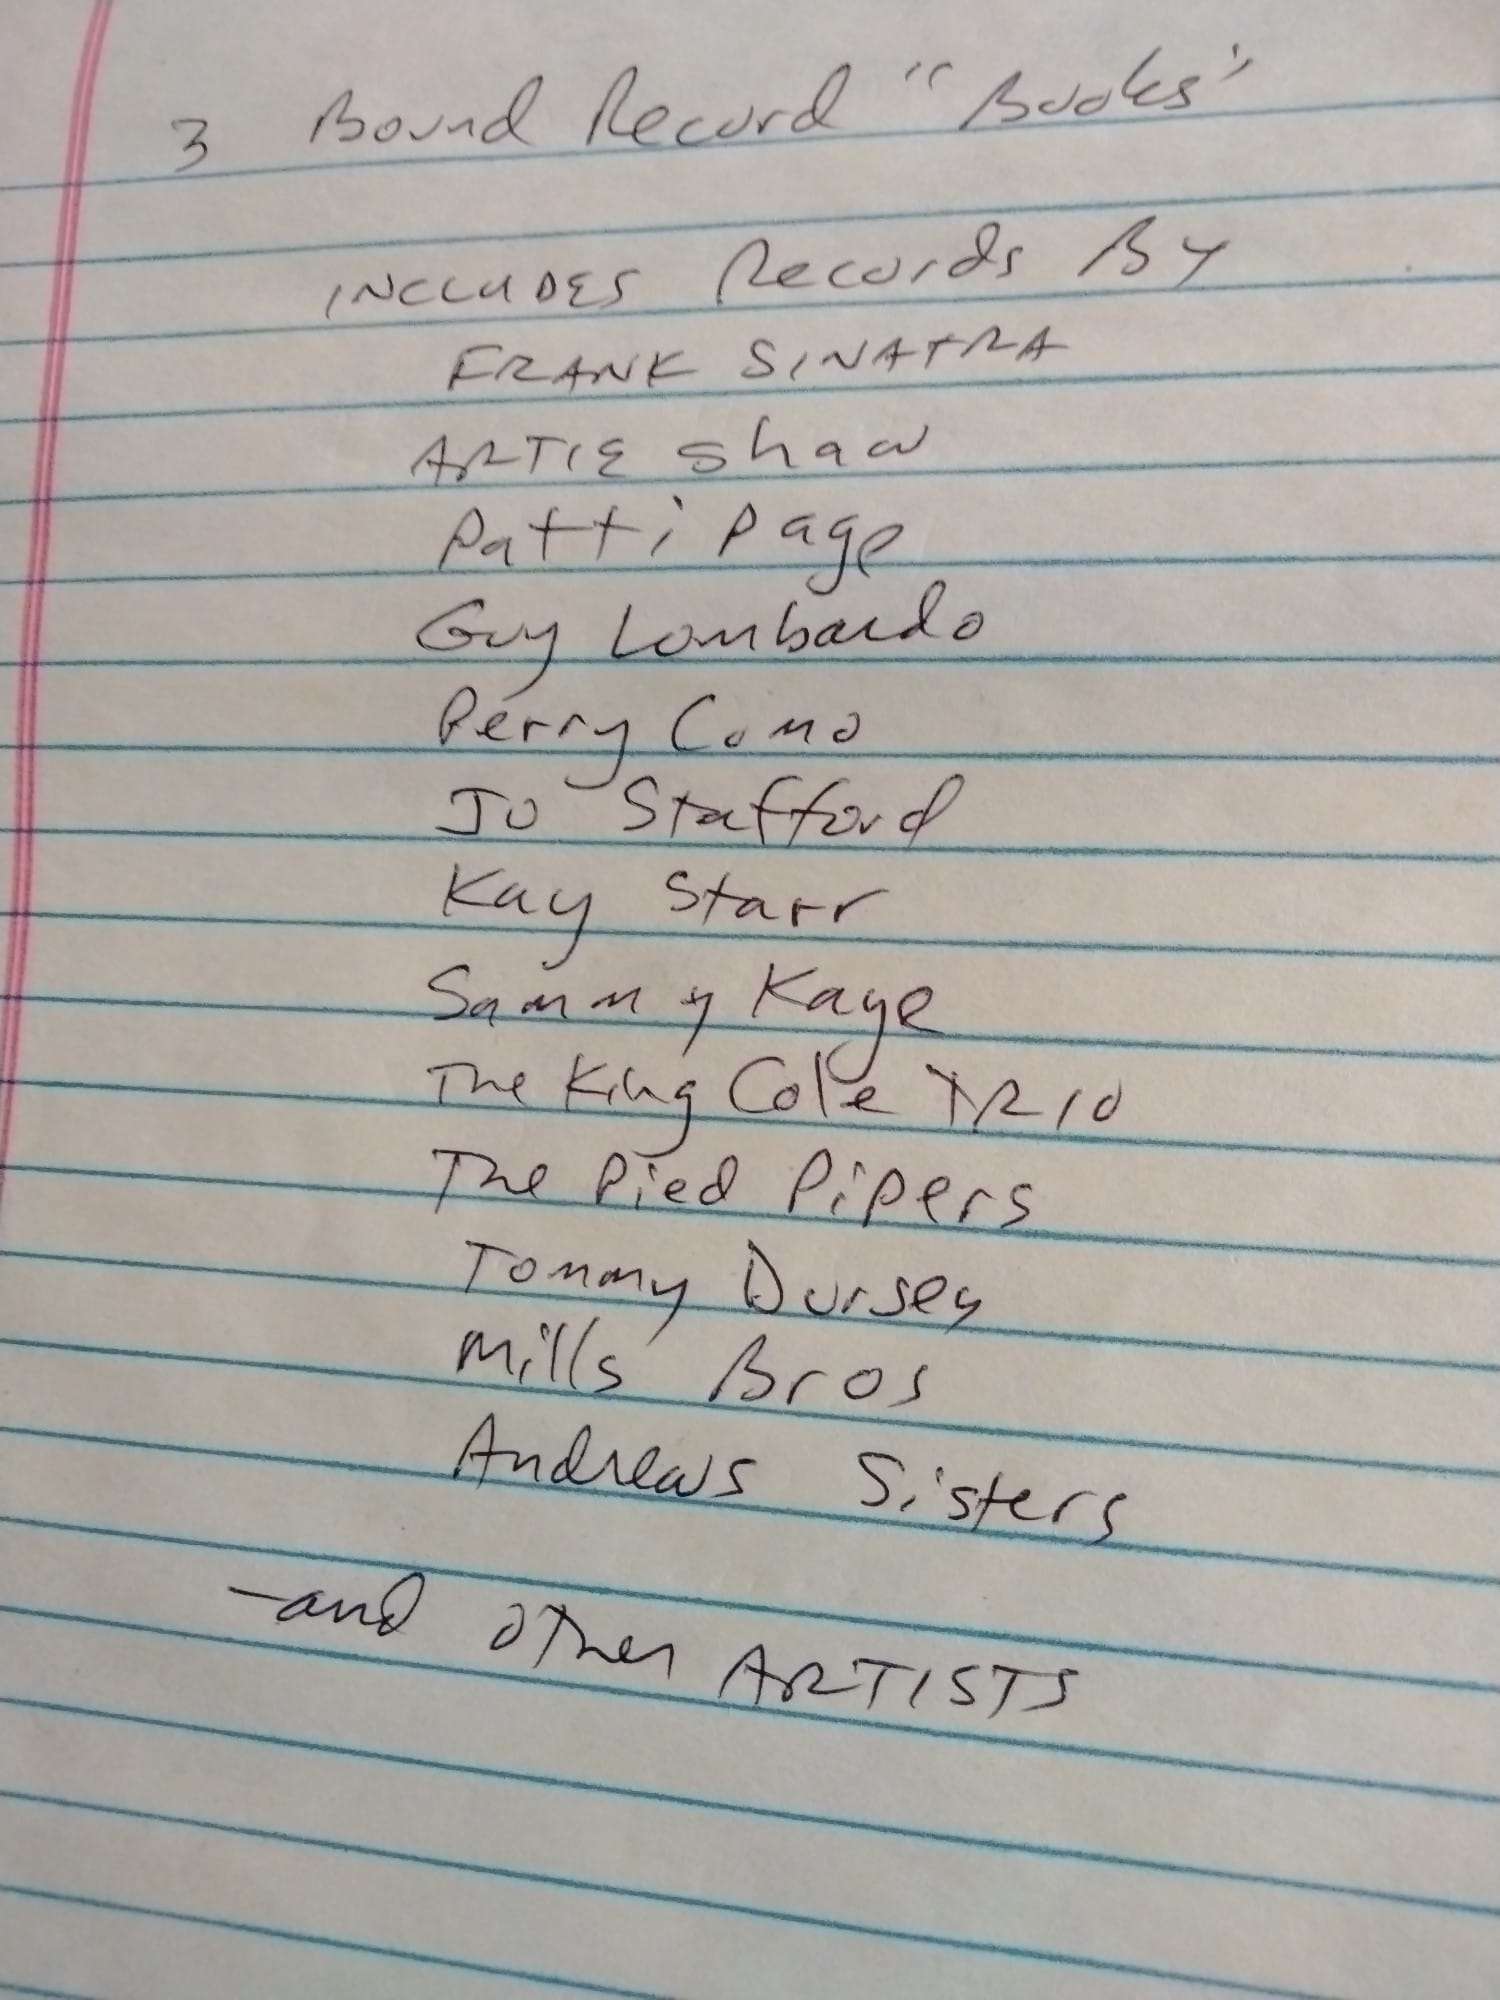 3 Bound Record "Books"
INCLUDES Records By
FRANK SINATRA
ARTIE Shaw
Patti Page
Guy Lombardo
Perry Como
Jo Stafford
Kay Starr
Sammy Kaye
The King Cole TRIO
The Pied Pipers
Tommy Dorsey
Mills Bros
Andrews Sisters
-and other ARTISTS